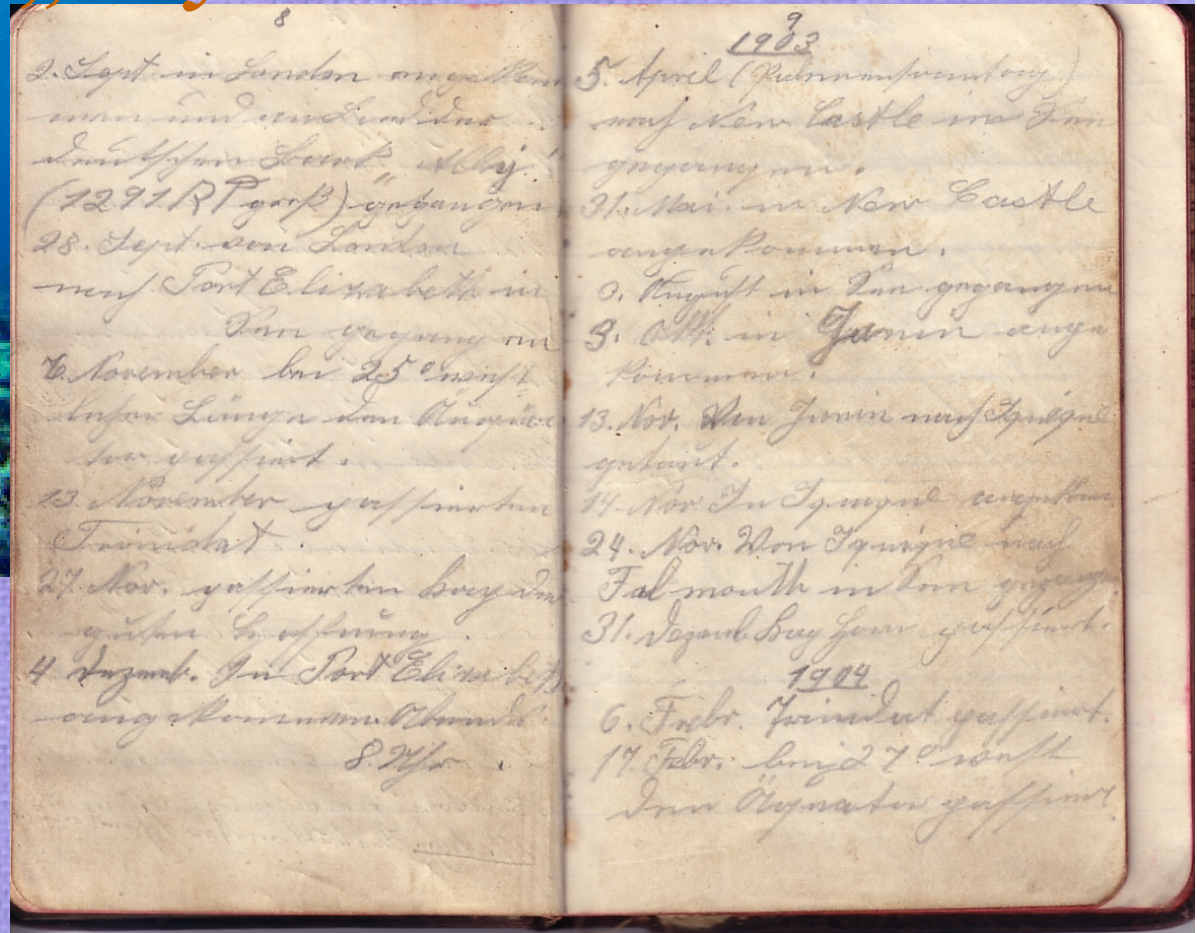 8
2. Sept. in London angekom
men und an Bord der
deutschen Bark „
(1291 RT groß) gegangen
28. Sept. von London
nach Port Elizabeth in
See gegangen
6. November bei 25° west
licher Länge den Äqua
tor passiert.
13. November passierten
Trinidat.
27. Nov. passierten Kap der
guten Hoffnung.
4 Dezemb. In Port Elizabeth
angekommen. Abends
8 Uhr.
9
1903
5. April (Palmensonntag)
nach New Castle in See
gegangen.
31. Mai. in New Castle
angekommen.
3. August in See gegangen
3. Okt. in Junin ange
kommen.
13. Nov. Von Junin nach Iquique
getaut.
14. Nov. In Iquique angekom
24. Nov. Von Iquique nach
Falmouth in See gegangen
31. Dezemb. Kap Horn passiert.
1904
6. Febr. Trinidat passiert.
17. Febr. bei 27° west
den Äquator passiert